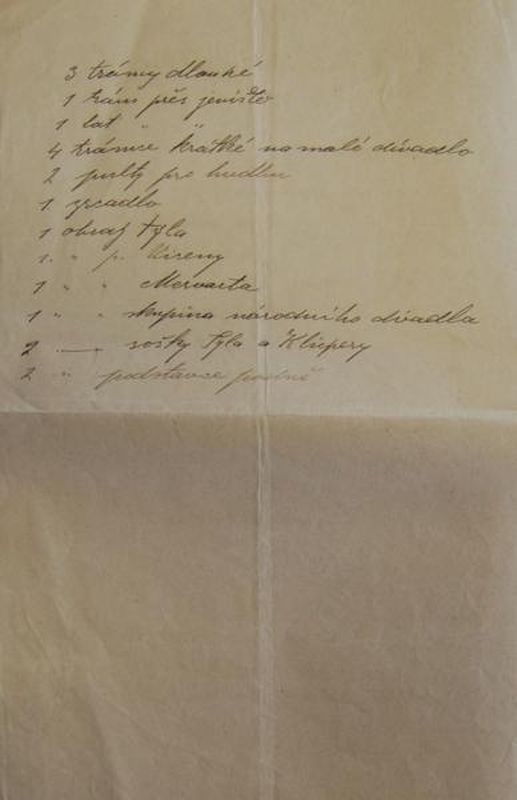 3 trámy dlouhé
1 trám přes jeviště
1 lat " "
4 trámce krátké na malé divadlo
2 pulty pro hudbu
1 zrcadlo
1 obraz Tyla
1 " p. Kiseny
1 " " Mervarta
1 " " skupina národního divadla
2 — sošky Tyla a Klicpery
2 " podstavce